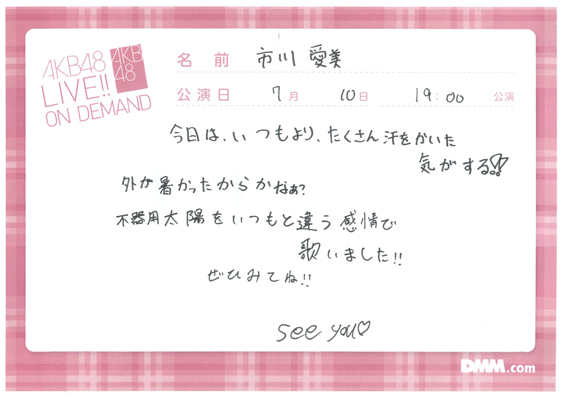 AKB48
LIVE!!
ON DEMAND
AKB
48
名前 市川 愛美
公演日 7月 10日 19:00 公演
今日は、いつもより、たくさん汗をかいた
気がする!?
外が暑かったからかなぁ?
不器用太陽をいつもと違う感情で
歌いました!!
ぜひみてね!!
see you♡
DMM.com